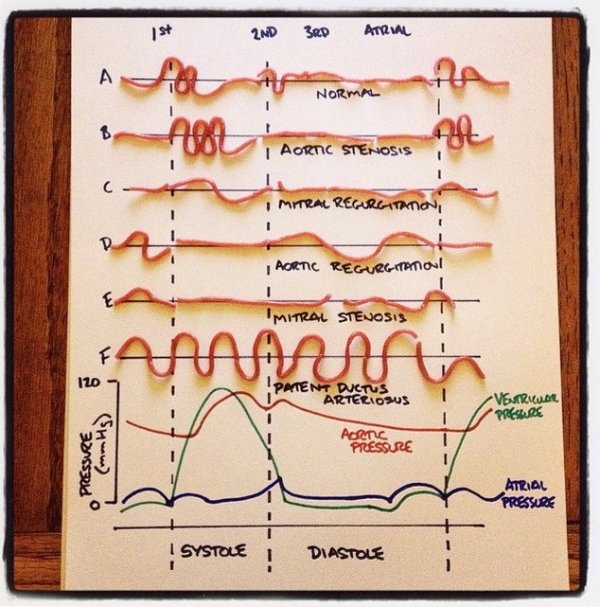 1st 2ND 3RD ATRIAL
A
NORMAL
B
AORTIC STENOSIS
C
MITRAL REGURGITATION
D
AORTIC REGURGITATION
E
MITRAL STENOSIS
F
PATENT DUCTUS
ARTERIOSUS
120
PRESSURE
(mmHg)
0
VENTRICULAR
PRESSURE
AORTIC
PRESSURE
ATRIAL
PRESSURE
SYSTOLE DIASTOLE